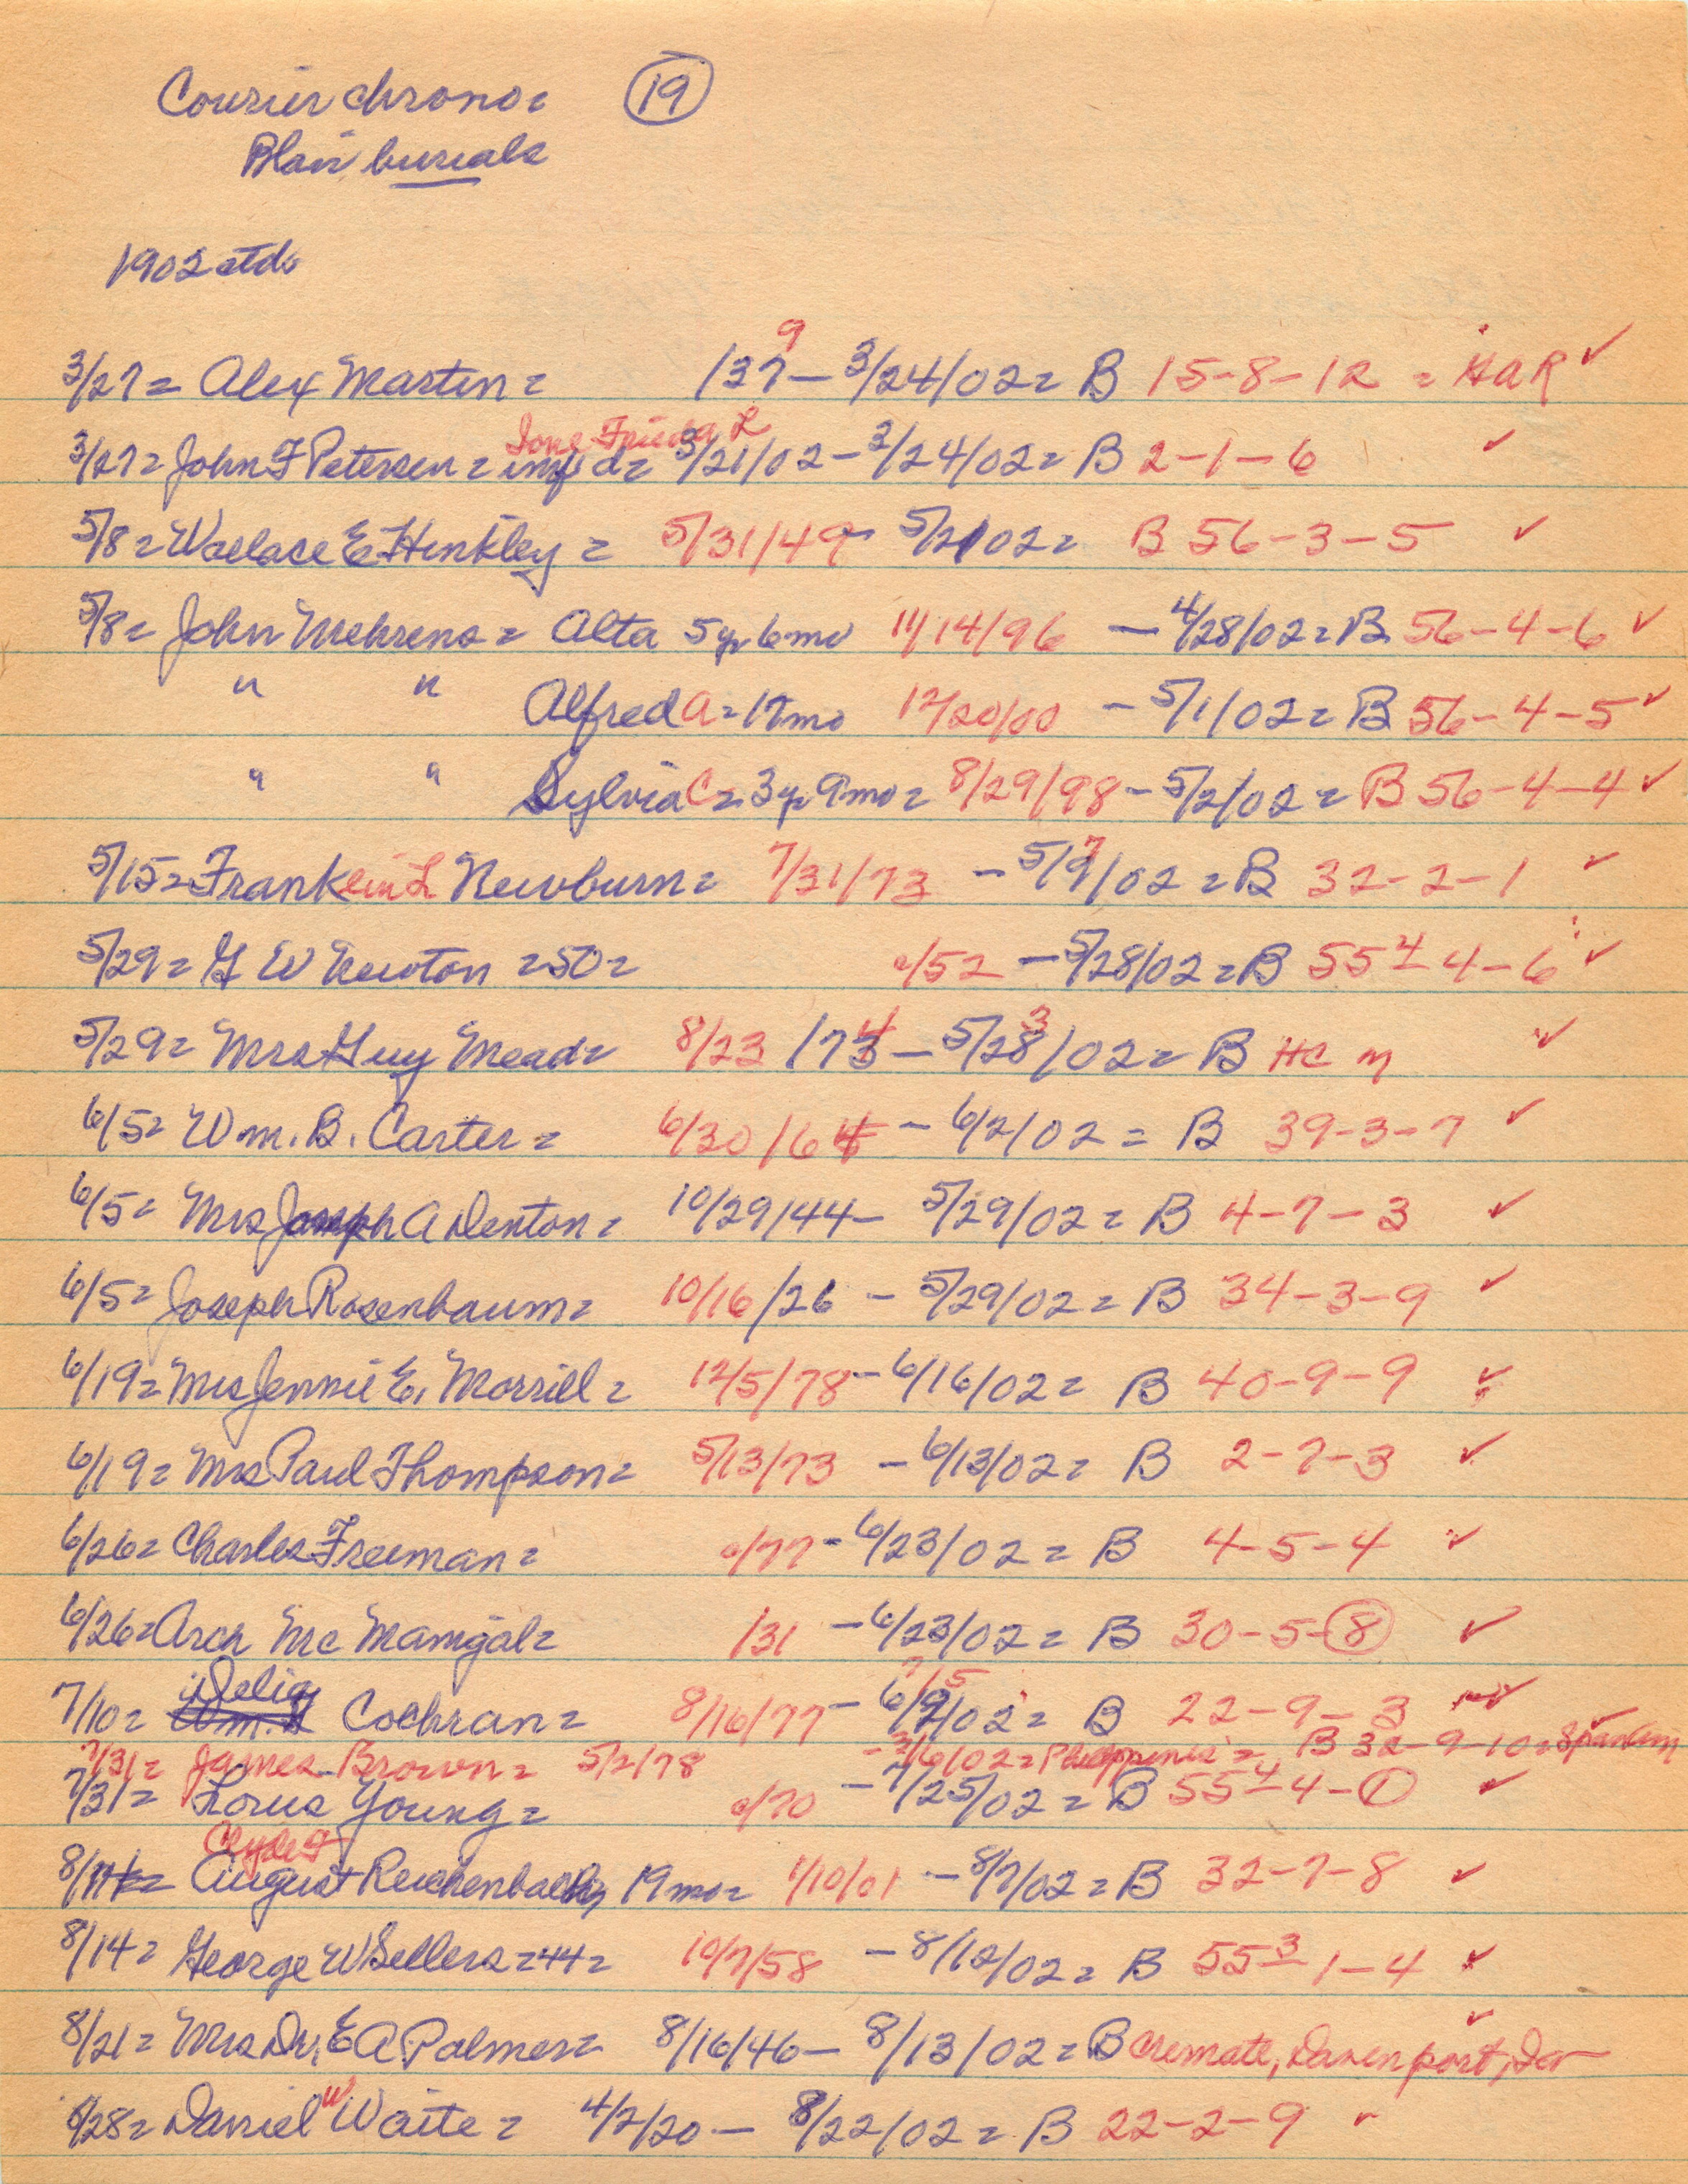 Courier chrono= 19
Blair burials
1902 ctd.
9
3/27= Alex Martin= /37 – 3/24/02= B 15-8-12 = GAR ✓
Frieda L
3/27= John F Petersen= inf d= 3/21/02 – 3/24/02= B 2-1-6 ✓
5/8= Wallace E Hinkley= 5/31/49 – 5/2/02= B 56-3-5 ✓
5/8= John Mehrens= Alta 5 yr 6 mo 11/14/96 – 4/28/02= B 56-4-6 ✓
" " Alfred A= 17 mo 12/20/00 – 5/1/02= B 56-4-5 ✓
" " Sylvia C= 3 yr 9 mo= 8/29/98 – 5/2/02= B 56-4-4 ✓
7
5/15= Franklin L Newburn= 7/31/73 – 5/9/02= B 32-2-1 ✓
5/29= G W Newton =50= c/52 – 5/28/02= B 55 4 4-6 ✓
4 3
5/29= Mrs Guy Mead= 8/23/73 – 5/28/02= B HC M ✓
6/5= Wm. B. Carter= 6/30/64 – 6/2/02= B 39-3-7 ✓
6/5= Mrs Joseph A Denton= 10/29/44 – 5/29/02= B 4-7-3 ✓
6/5= Joseph Rosenbaum= 10/16/26 – 5/29/02= B 34-3-9 ✓
6/19= Mrs Jennie E. Morrill= 12/5/78 – 6/16/02= B 40-9-9 ✓
6/19= Mrs Paul Thompson= 5/13/73 – 6/13/02= B 2-7-3 ✓
6/26= Charles Freeman= c/77 – 6/23/02= B 4-5-4 ✓
6/26= Arch Mc Mamigal= /31 – 6/23/02= B 30-5-8 ✓
Delia 7/5
7/10= Wm. Cochran= 8/16/77 – 6/9/02= B 22-9-3 ✓
7/31= James Brown= 5/2/78 – 3/6/02= Philippines= B 32-9-10= SpanAm
7/31= Lorus Young= c/70 – 7/25/02= B 55 4 4-1 ✓
Clyde F
8/14= August Reichenbach, 19 mo= 1/10/01 – 8/7/02= B 32-7-8 ✓
8/14= George W Sellers =44= 10/7/58 – 8/12/02= B 55 3 1-4 ✓
8/21= Mrs Dr. E A Palmer= 8/16/46 – 8/13/02= B cremate, Davenport, Ia ✓
8/28= Daniel W Waite= 4/2/20 – 8/22/02= B 22-2-9 ✓